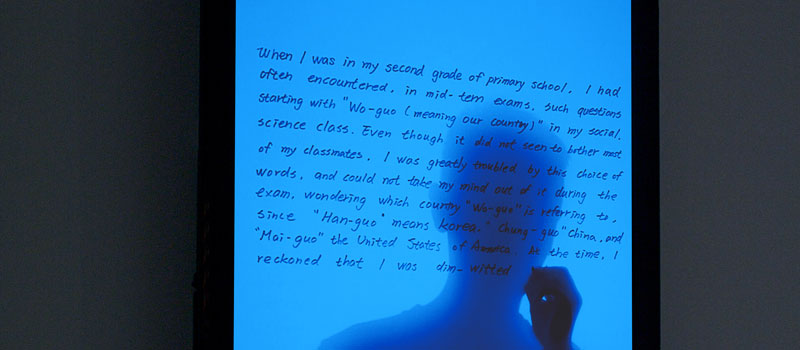 When I was in my second grade of primary school. I had
often encountered, in mid-term exams. such questions
starting with "Wo-guo (meaning our country)" in my social,
science class. Even though it did not seen to bother most
of my classmates. I was greatly troubled by this choice of
words, and could not take my mind out of it during the
exam. wondering which country "Wo-guo" is referring to,
since "Han-guo" means korea. "Chung-guo" China, and
"Mai-guo" the United States of America. At the time, I
reckoned that I was dim-witted